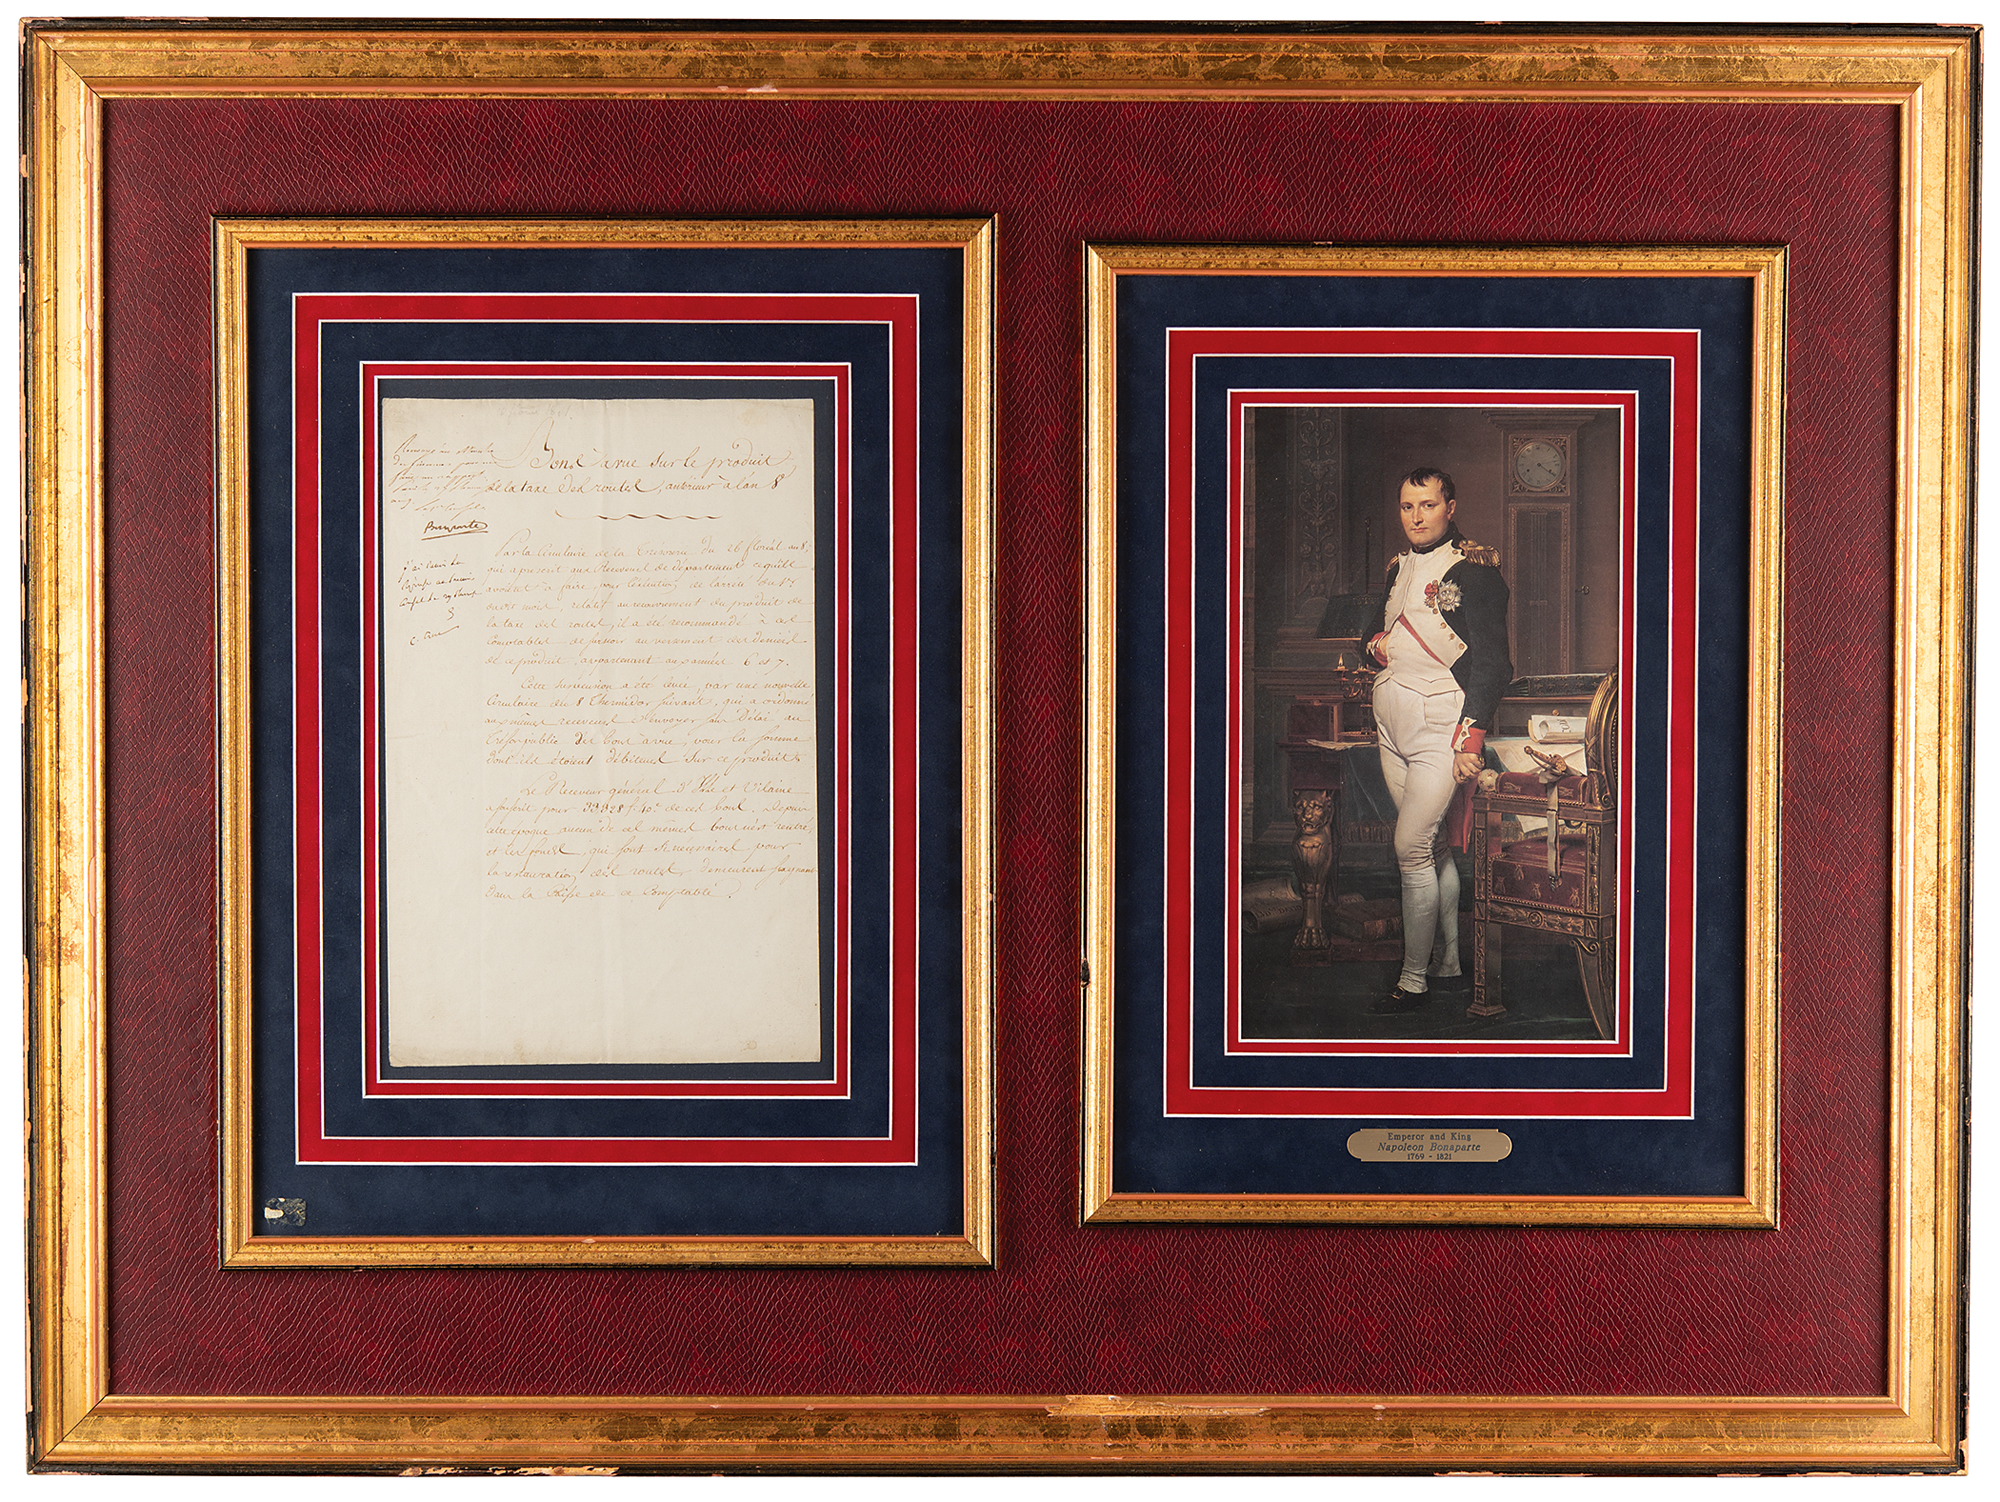 Bons à vue sur le produit
de la taxe des routes, antérieur à l'an 8
Bonaparte
Par la Circulaire de la Trésorerie du 26 floréal an 8,
qui a prescrit aux Receveurs de département ce qu'ils
avoient à faire, pour l'éxécution de l'arrêté du 1er
du dit mois, relatif au recouvrement du produit de
la taxe des routes, il a été recommandé à ces
Comptables de surseoir au versement des deniers
de ce produit, appartenant aux années 6 et 7.
Cette a été levée, par une nouvelle
Circulaire du 8 Thermidor suivant, qui a ordonné
aux mêmes receveurs d'envoyer sans délai au
Trésor public des bons à vue, pour la somme
dont ils étoient débiteurs sur ce produit.
Le Receveur général d'Ille et Vilaine
a souscrit pour 33828 f. 40 c. de ces bons. Depuis
cette époque aucun de ces mêmes bons n'est rentré,
et les fonds, qui sont si necessaires pour
la restauration des routes, demeurent
dans la Caisse de ce Comptable.
Emperor and King
Napoleon Bonaparte
1769 - 1821